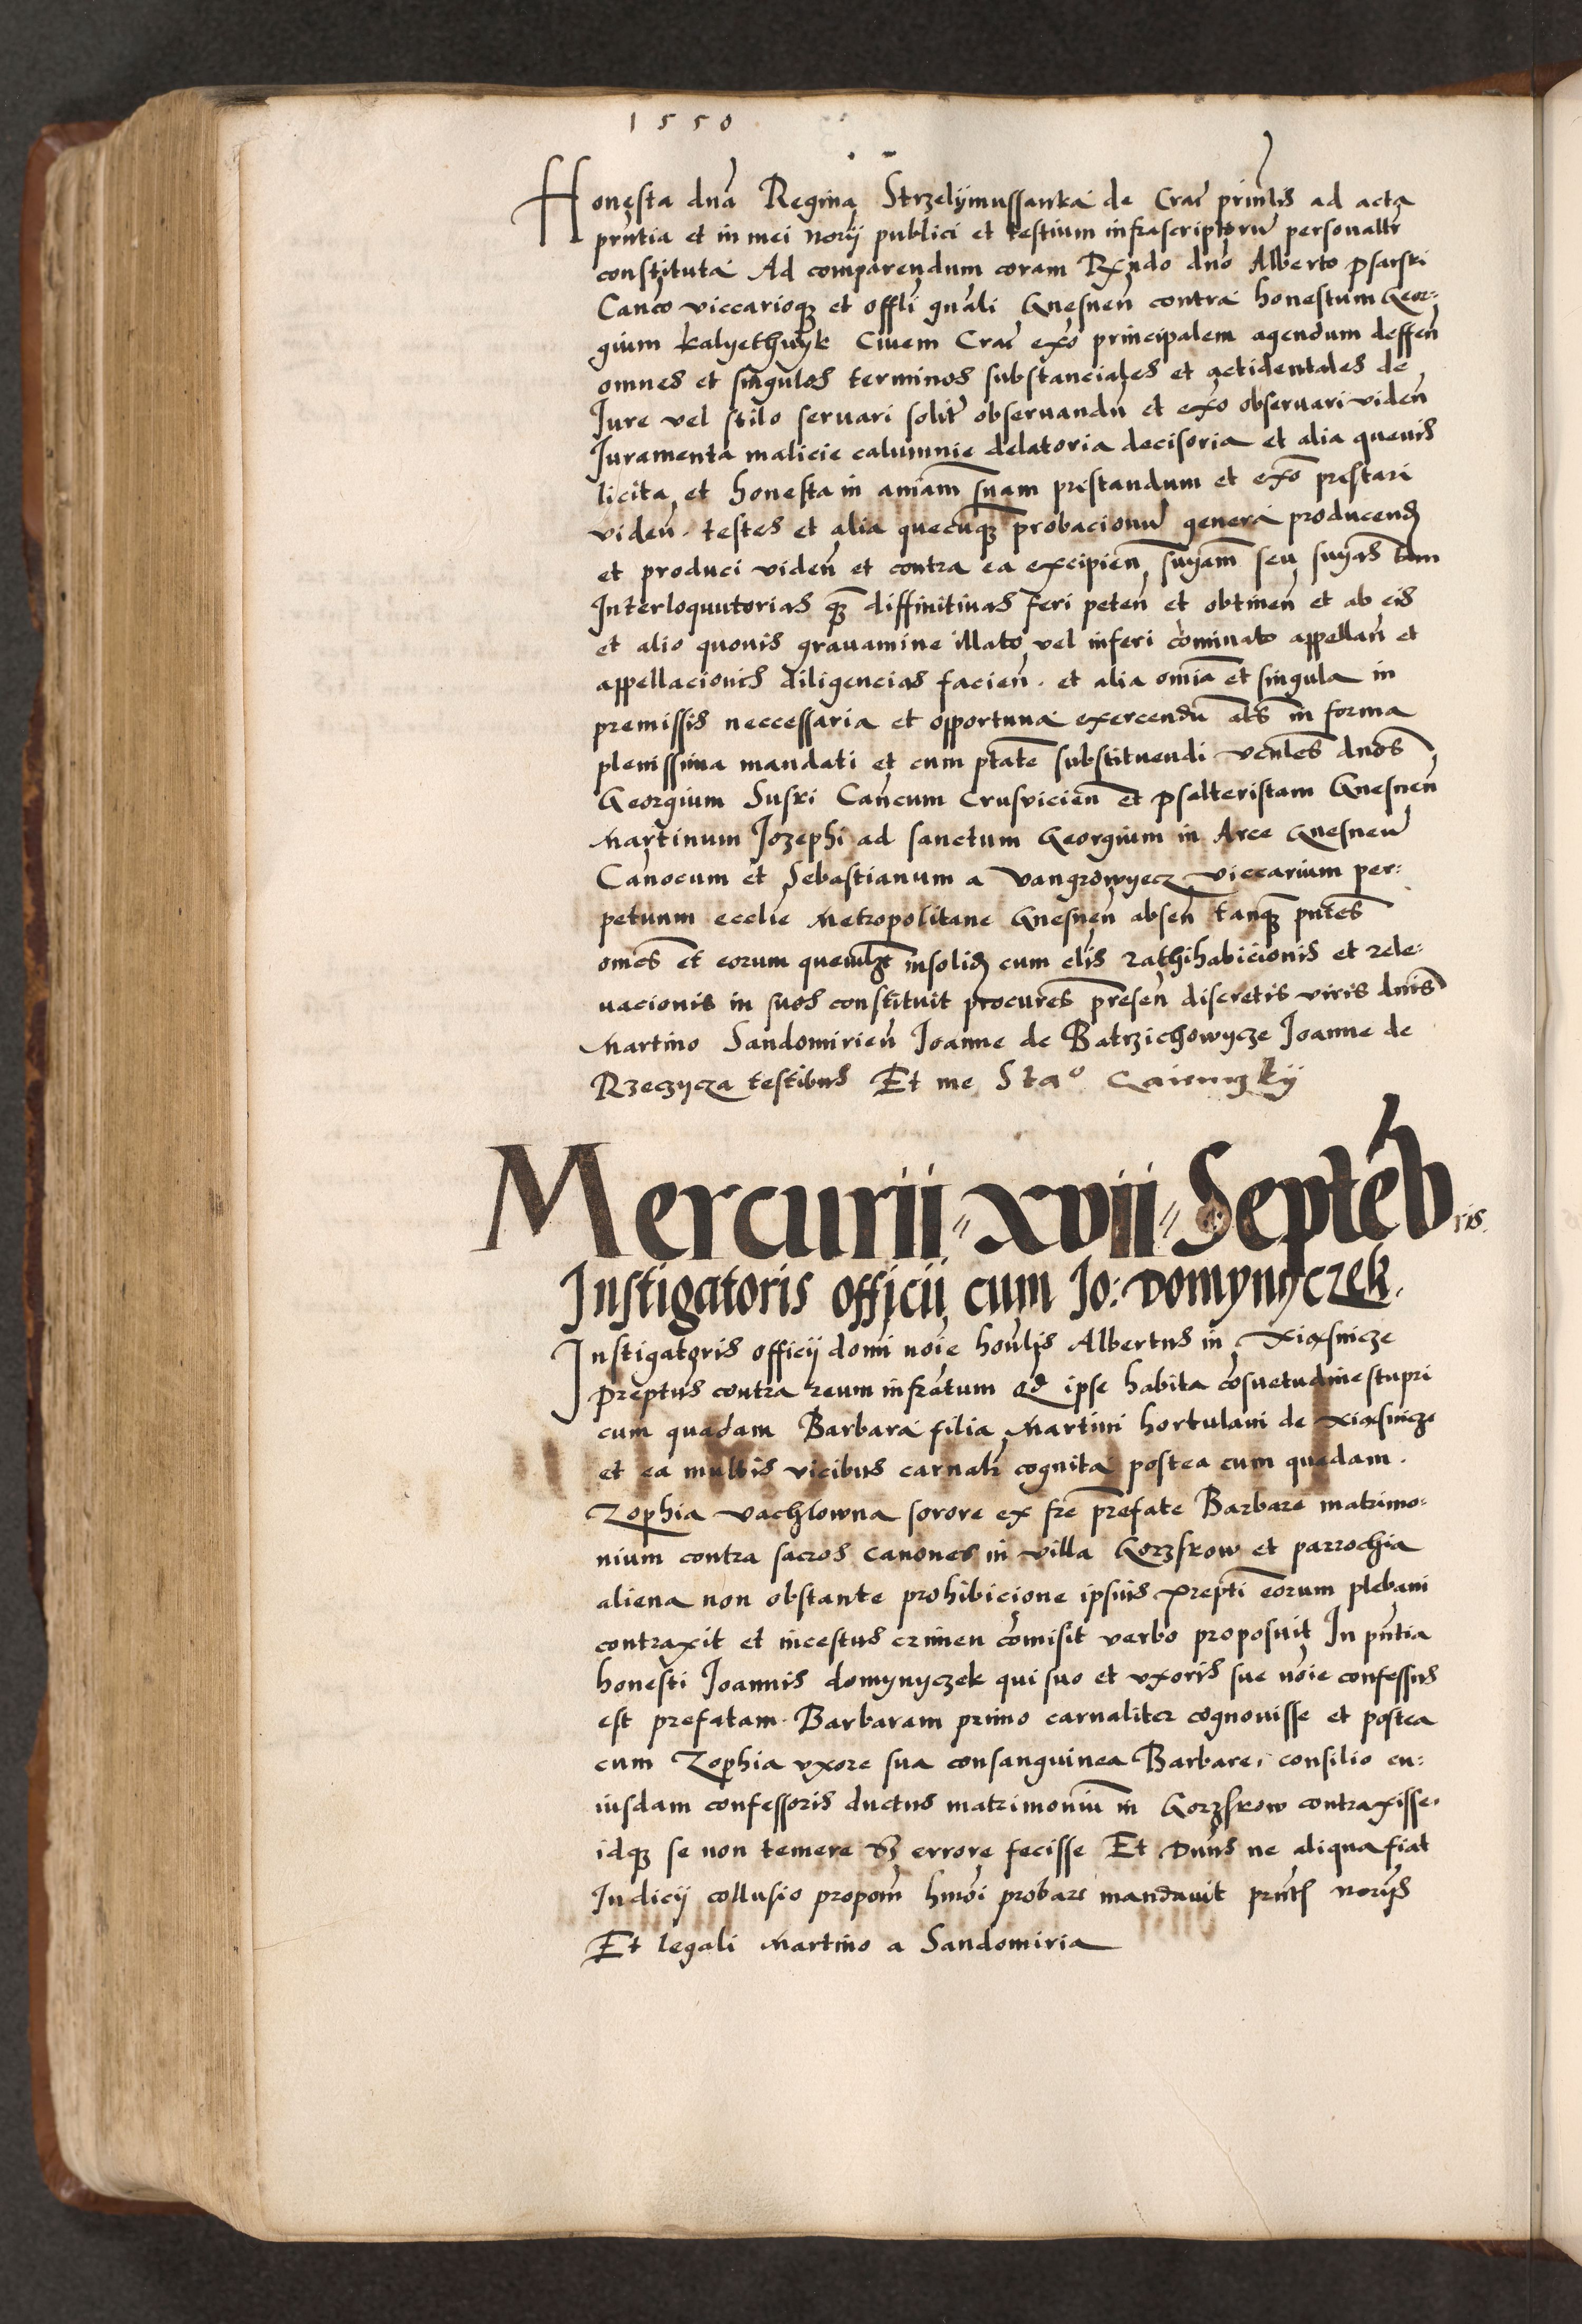 1550
Honesta dnā Regina Strzelÿmussanka de Crac̄ prin̄lis ad acta
prn̄tia et in mei norÿ publici et testium infrascriptoru̅ personalr̄
constituta Ad comparendum coram Rx̄ndo dno̅ Alberto Psarski
Canc̄o viccarioq̨ et offl̄i gn̄ali Gnesnen̄ contra honestum Geor⸗
gium kalyethnÿk Ciuem Crac̄ ex̄o principalem agendum deffen̄
omnes et singulos terminos substanciales et actidentales de
Iure vel stilo seruari solit̄ obseruandu̅ et ex̄o obseruari viden̄
Iuramenta malicie calumnie delatoria decisoria et alia queuis
licita et honesta in ani̅am su̅am prestandum et ex̄o prestari
viden̄. testes et alia quecūq̨ probacionu̅ genera producend̨
et produci viden̄ et contra ea excipien̄ sn̅yam seu sn̅yas tam
Interloquutorias q̨̄ diffinitiuas feri peten̄ et obtinen̄ et ab eis
et alio quouis grauamine illato vel inferi co̅minato appellan̄ et
appellacionis diligencias facien̄. et alia om̄ia et singula in
premissis neccessaria et opportuna exercendu̅ al̄s in forma
plenissima mandati et cum ptāte substituendi ven̄les dno̅s
Georgium Suski Canc̄um Crusvicien̄ et psalteristam Gnesnen̄
Martinum Jozephi ad sanctum Georgium in Arce Gnesnen̄
Canocum et Sebastianum a Vangrowyecz viccarium per⸗
petuum eccl̄ie Metropolitane Gnesnen̄ absen̄ tanq̨̄ pn̄tes
om̄es et eorum quemlz̄t insolid̨ cum cl̄is rathihabicionis et rele⸗
uacionis in suos constituit procures̄ presen̄ discretis viris dnis̄
Martino Sandomirien̄ Joanne de Batrzichowycze Joanne de
Rzeczycza testibus Et me Sta⁰
Mercurii〃xvii〃Septēbris
Instigatoris officii cum Jo: Domynyczek.
Instigatoris officÿ domi̅ no̅ie hon̄lis Albertus in Xiasnicze
preptus contra reum infrātum qd̨ ipse habita co̅suetudine stupri
cum quadam Barbara filia Martini hortulani de xiasnicze
et ea multis vicibus carnalr̄ cognita postea cum quadam.
Zophia vachlowna sorore ex fr̄e prefate Barbare matrimo⸗
nium contra sacros canones in villa Gorzkow et parrochia
aliena non obstante prohibicione ipsius prepti̅ eorum plebani
contraxit et incestus crimen co̅misit verbo proposuit In pn̄tia
honesti Joannis domynyczek qui suo et vxoris sue no̅ie confessus
est prefatam Barbaram primo carnaliter cognouisse et postea
cum Zophia vxore sua consanguinea Barbare. consilio cu⸗
iusdam confessoris ductus matrimoniu̅ in Gorzkow contraxisse.
idq̨ se non temere sz̨ errore fecisse Et Dnn̄s ne aliqua fiat
Iudicÿ collusio propom̄ hmo̅i probare mandauit prn̄tī norÿs
Et legali Martino a Sandomiria